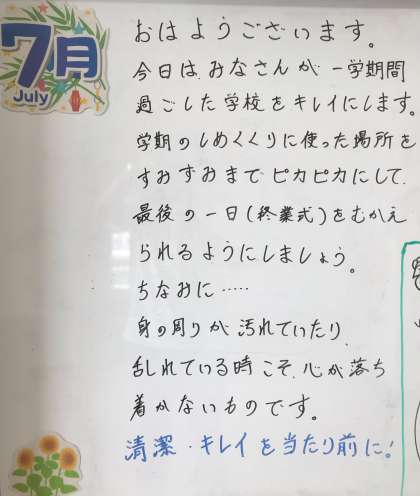 7月
July
おはようございます。
今日は、みなさんが一学期間
過ごした学校をキレイにします。
学期のしめくくりに使った場所を
すみずみまでピカピカにして、
最後の一日(終業式)をむかえ
られるようにしましょう。
ちなみに……
身の周りが汚れていたり、
乱れている時こそ、心が落ち
着かないものです。
清潔・キレイを当たり前に!